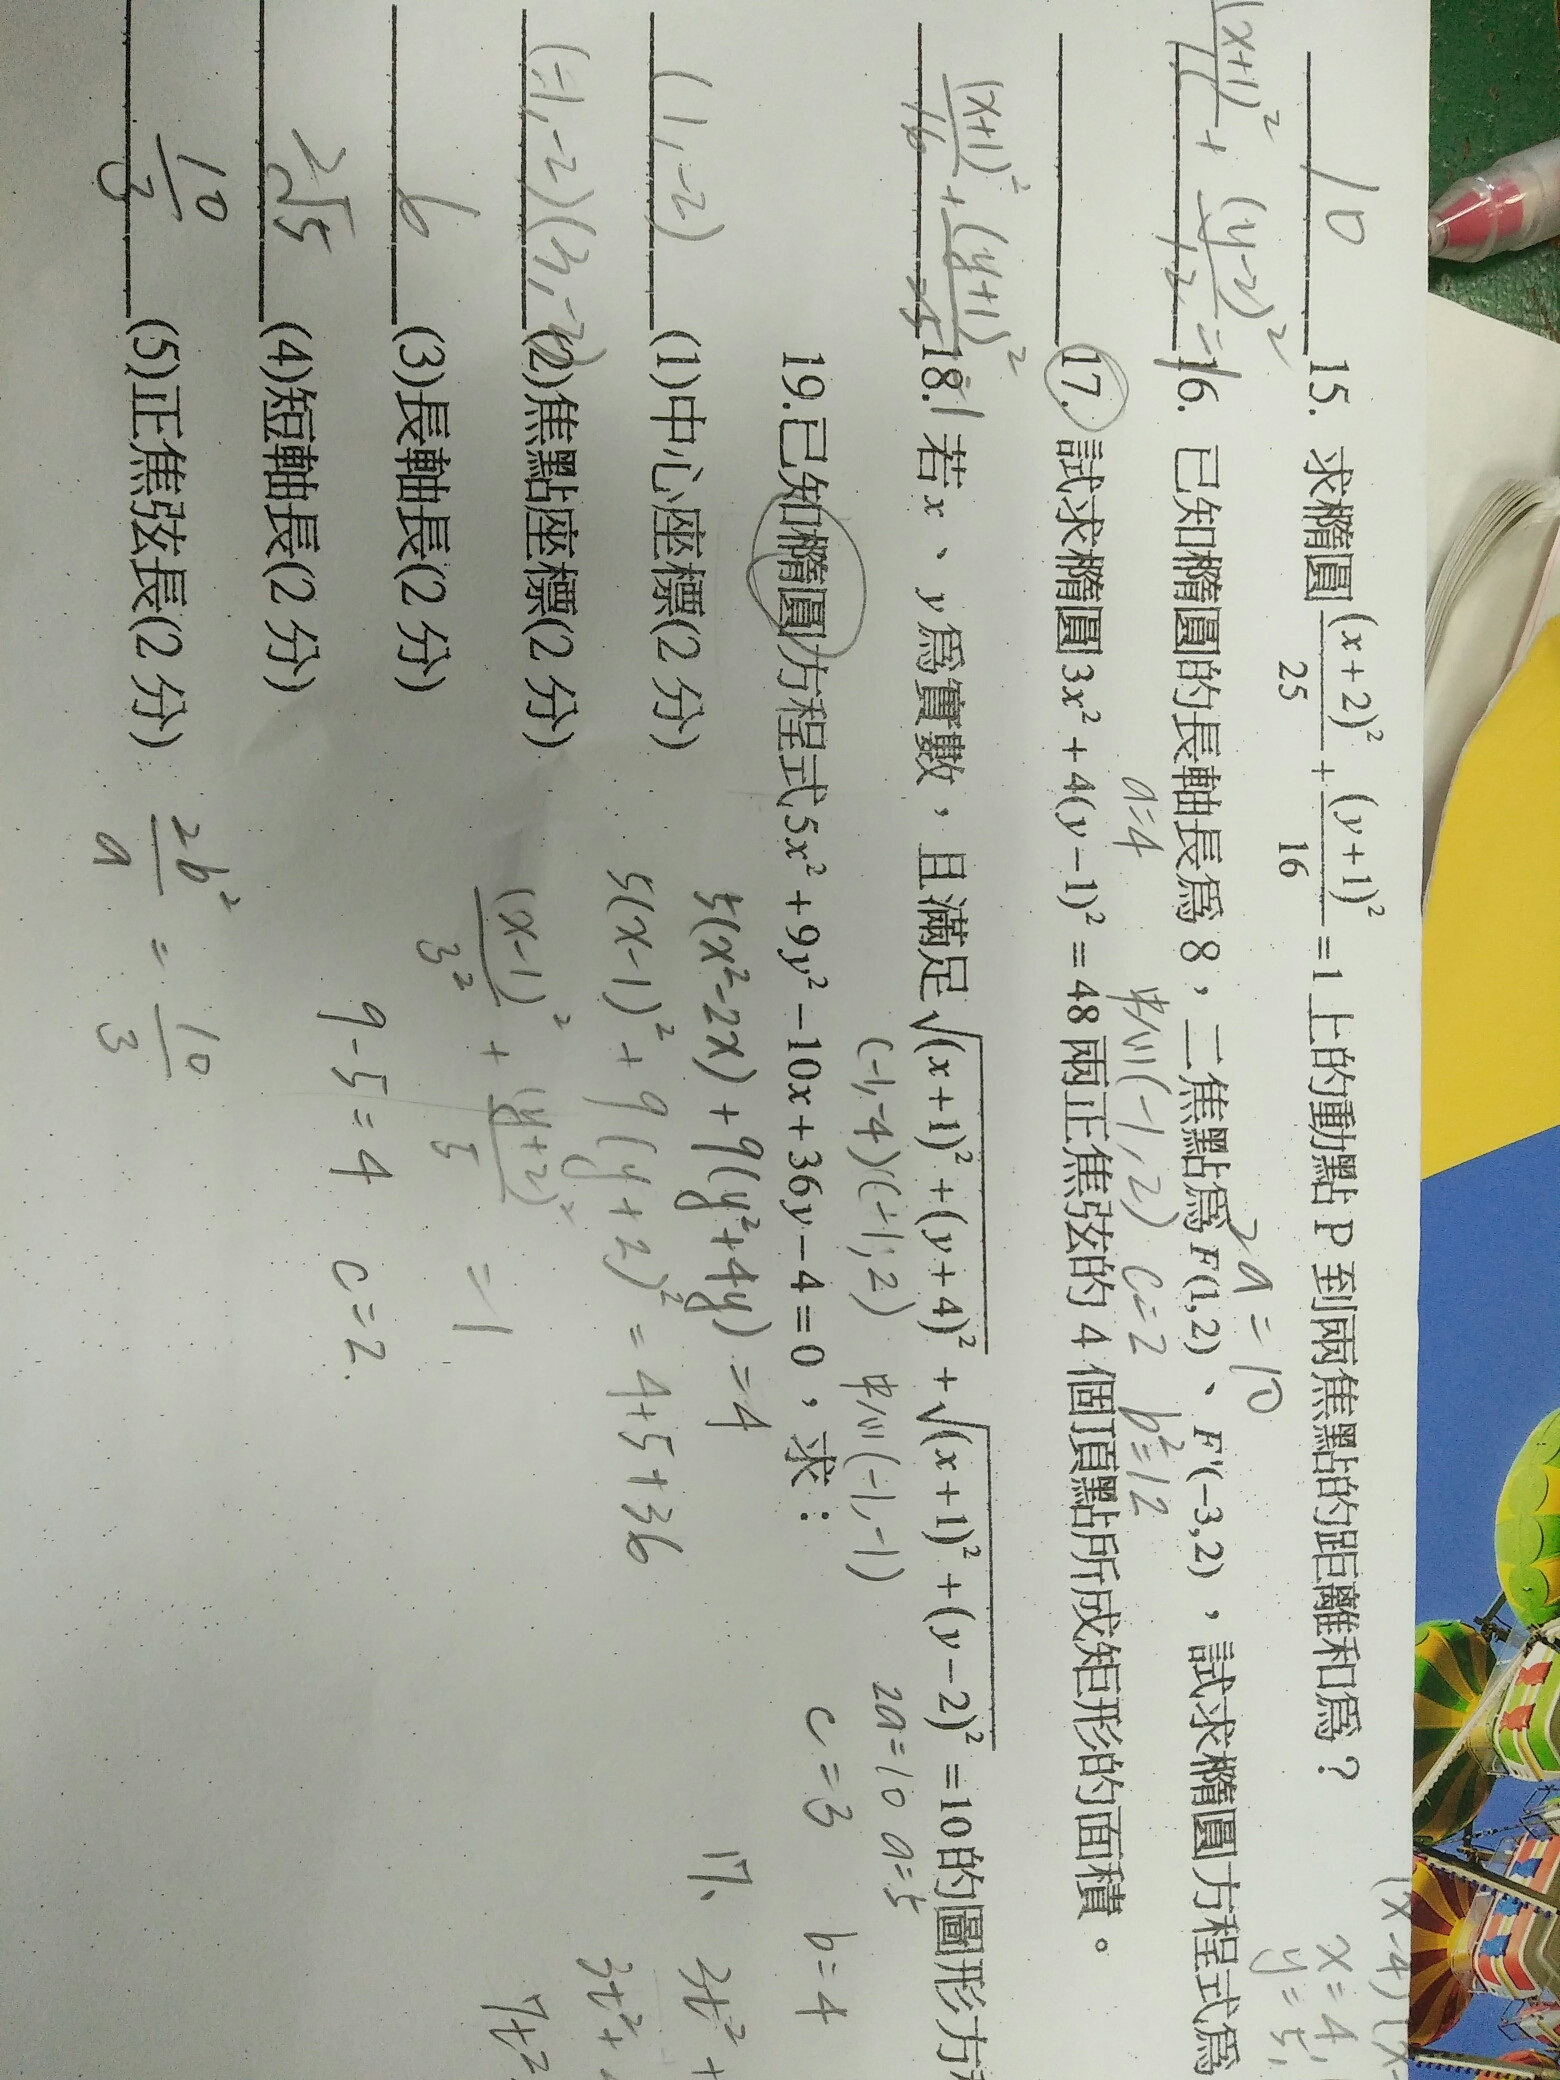 10 15. 求橢圓(x+2)²/25+(y+1)²/16=1上的動點 P 到兩焦點的距離和為?
2a=10
(x+1)²/16+(y-2)²/12=1 16. 已知橢圓的長軸長為 8,二焦點為F(1,2)、F'(-3,2),試求橢圓方程式為
a=4 中心(-1,2) c=2 b²=12
17. 試求橢圓3x²+4(y-1)²=48兩正焦弦的 4 個頂點所成矩形的面積。
(x+1)²/16+(y+1)²/25=1 18. 若x、y為實數,且滿足√(x+1)²+(y+4)²+√(x+1)²+(y-2)²=10的圖形方
(-1,-4)(-1,2) 中心(-1,-1) 2a=10 a=5
c=3 b=4
19.已知橢圓方程式5x²+9y²-10x+36y-4=0,求:
(1,-2) (1)中心座標(2 分)
(-1,-2)(3,-2) (2)焦點座標(2 分)
6 (3)長軸長(2 分)
2√5 (4)短軸長(2 分)
10/3 (5)正焦弦長(2 分)
5(x²-2x)+9(y²+4y)=4
5(x-1)²+9(y+2)²=4+5+36
(x-1)²/3²+(y+2)²/5=1
9-5=4 c=2
2b²/a=10/3
17、 3t²+
3t²+
7t²
(x-4)(x-
x=4,
y=5,